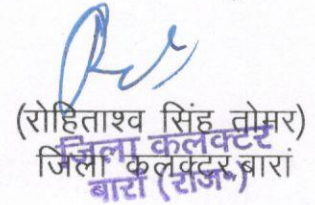 (रोहिताश्व सिंह तोमर)
जिला कलक्टर बारां
जिला कलक्टर
बारां (राज०)